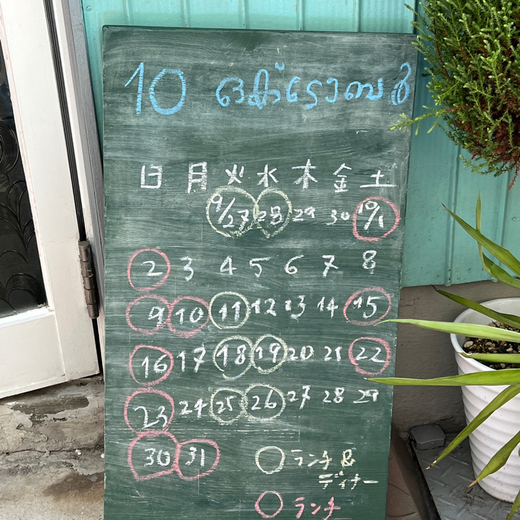 10 ഒക്ടോബർ
日 月 火 水 木 金 土
9/27 28 29 30 10/1
2 3 4 5 6 7 8
9 10 11 12 13 14 15
16 17 18 19 20 21 22
23 24 25 26 27 28 29
30 31
ランチ&
ディナー
ランチ